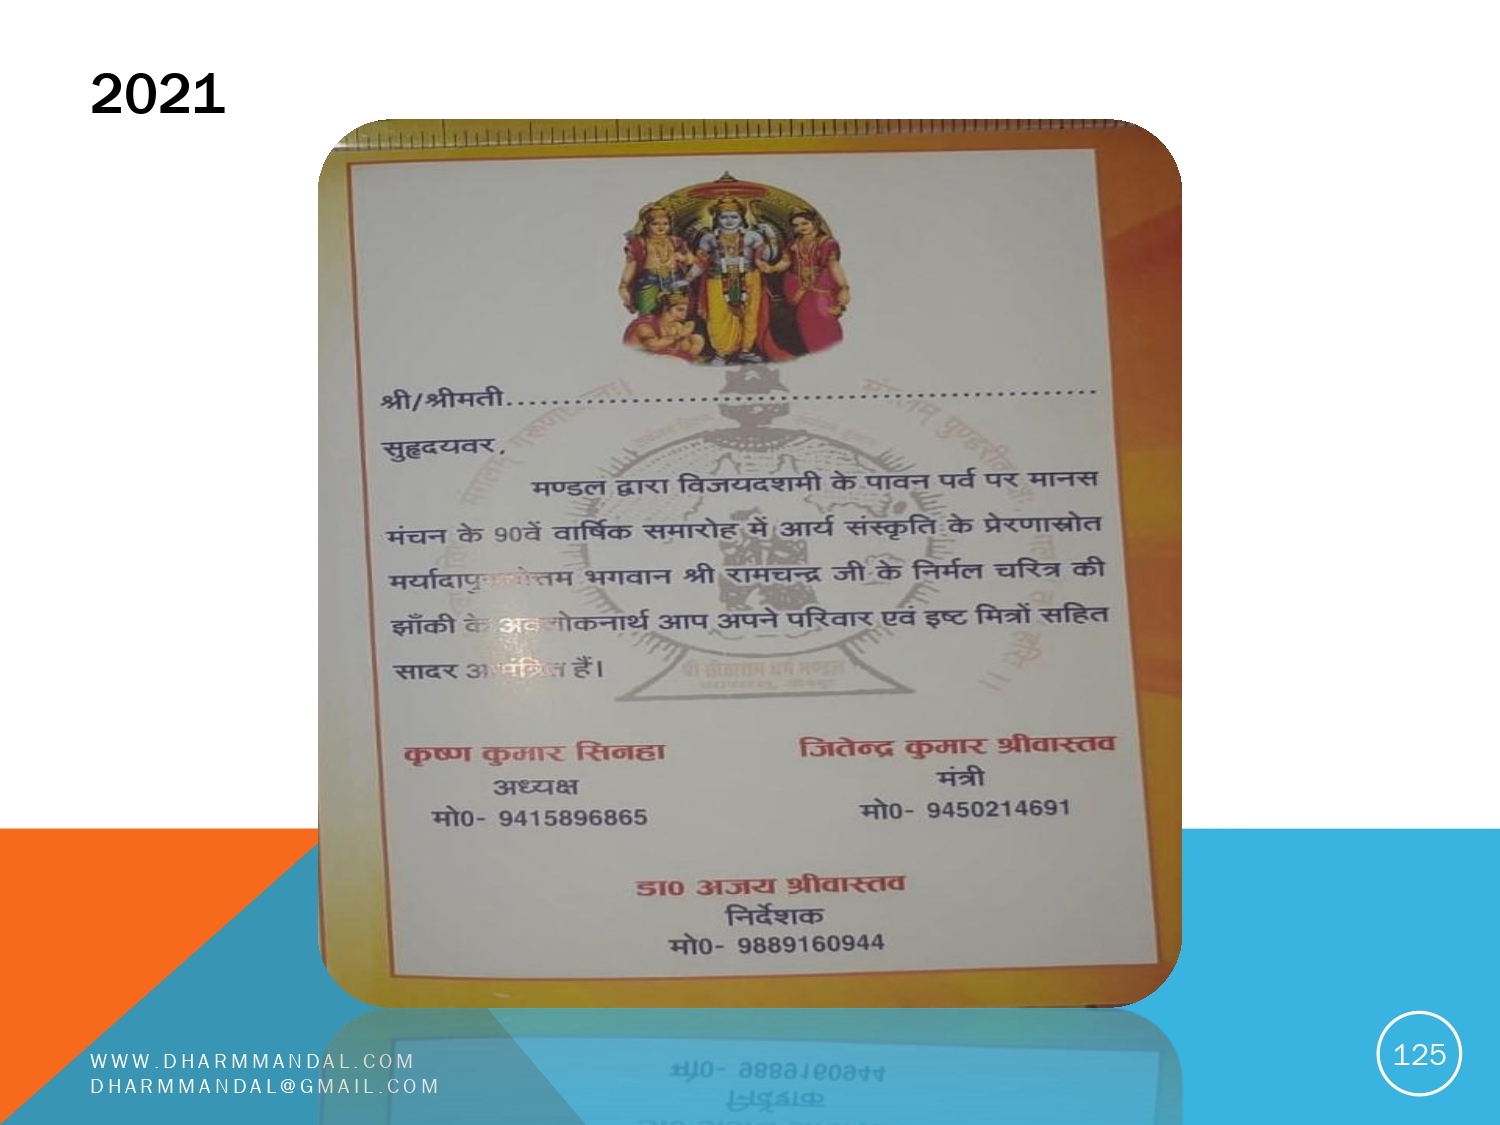 2021
श्री/श्रीमती........................................................
सुहृदयवर,
मण्डल द्वारा विजयदशमी के पावन पर्व पर मानस
मंचन के 90वें वार्षिक समारोह में आर्य संस्कृति के प्रेरणास्रोत
मर्यादापुरूषोत्तम भगवान श्री रामचन्द्र जी के निर्मल चरित्र की
झाँकी के अवलोकनार्थ आप अपने परिवार एवं इष्ट मित्रों सहित
सादर आमंत्रित हैं।
श्री सीताराम धर्म मण्डल
कृष्ण कुमार सिनहा
जितेन्द्र कुमार श्रीवास्तव
अध्यक्ष
मंत्री
मो0- 9415896865
मो0- 9450214691
डा0 अजय श्रीवास्तव
निर्देशक
मो0- 9889160944
WWW.DHARMMANDAL.COM
DHARMMANDAL@GMAIL.COM
125